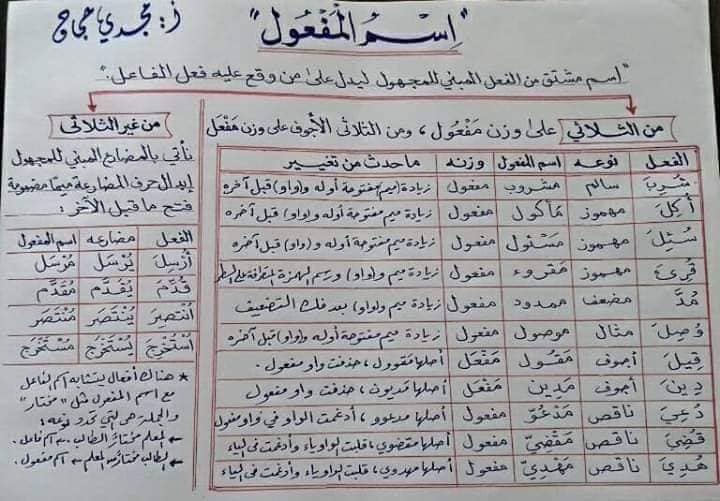 أ: مجدي حجاج
"اِسْمُ الْمَفْعُول"
"اسم مشتق من الفعل المبني للمجهول ليدل على من وقع عليه فعل الفاعل".
من الثلاثي على وزن مَفْعُول، ومن الثلاثى الأجوف على وزن مَفْعَل
الفعل نوعه اسم المفعول وزنه ما حدث من تغيير
شُرِبَ سالم مشروب مفعول زيادة (ميم) مفتوحة أوله و(واو) قبل آخره
أُكِلَ مهموز مأكول مفعول زيادة ميم مفتوحة أوله و(واو) قبل آخره
سُئِلَ مهموز مَسْئول مفعول زيادة ميم مفتوحة أوله و(واو) قبل آخره
قُرِئَ مهموز مَقْروء مفعول زيادة ميم و(واو) ورسم الهمزة المتطرفة على السطر
مُدَّ مضعف ممدود مفعول زيادة ميم و(واو) بعد فك التضعيف
وُصِلَ مثال موصول مفعول زيادة ميم مفتوحة أوله و(واو) قبل آخره
قِيلَ أجوف مَقُول مَفْعَل أصلها مَقْوول، حذفت واو مفعول.
دِينَ أجوف مَدِين مَفْعَل أصلها مَديون، حذفت واو مفعول
دُعِيَ ناقص مَدْعُوّ مفعول أصلها مدعوو، أدغمت الواو في واو مفعول
قُضِيَ ناقص مَقْضِيّ مفعول أصلها مقضوي، قلبت الواو ياء وأدغمت فى الياء
هُدِيَ ناقص مَهْدِيّ مفعول أصلها مهدوي، قلبت الواو ياء وأدغمت فى الياء
من غير الثلاثى
نأتي بالمضارع المبني للمجهول
إبدال حرف المضارعة ميمًا مضمومة
فتح ما قبل الآخر:
الفعل مضارعه اسم المفعول
أُرْسِلَ يُرْسَل مُرْسَل
قُدِّمَ يُقَدَّم مُقَدَّم
انْتُصِرَ يُنْتَصَر مُنْتَصَر
اسْتُخْرِجَ يُسْتَخْرَج مُسْتَخْرَج
* هناك أفعال يتشابه اسم الفاعل
مع اسم المفعول مثل "مختار"
والجملة هى التي تحدد نوعه:
المعلم مختارٌ الطالب. اسم فاعل.
الطالب مختار من المعلم. اسم مفعول.